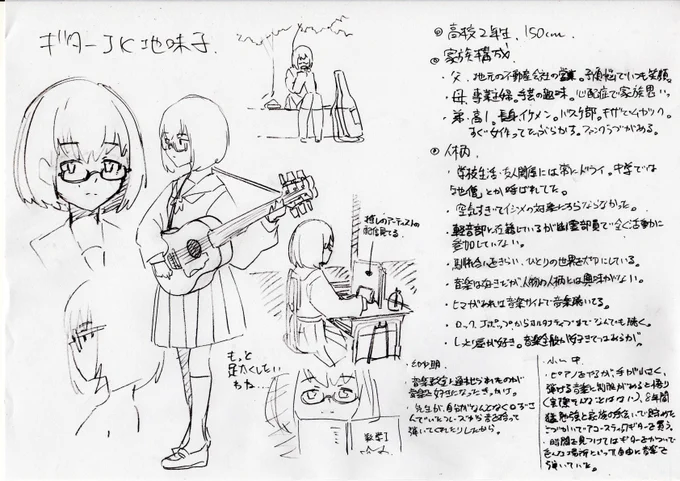 ギターJK地味子.
◎ 高校2年生. 150cm.
◎ 家族構成.
・父. 地元の不動産会社の営業。子煩悩でいつも笑顔。
・母. 専業主婦。手芸の趣味。心配症で家族思い。
・弟. 高1。長身イケメン。バスケ部。キザでムカつく。
すぐ女作ってたぶらかす。ファンクラブがある。
◎ 人柄.
・学校生活・友人関係には常にドライ。中学では
"地傷"とか呼ばれてた。
・空気すぎてイジメの対象にすらならなかった。
・軽音部に在籍しているが幽霊部員で全く活動に
参加していない。
・馴れ合いをきらい、ひとりの世界を大切にしている。
・音楽は好きだが人物の人柄とは興味がない。
・ヒマがあれば音楽サイトで音楽聴いてる。
・ロック、Jポップからオルタナティブまでなんでも聴く。
・しっとり系が好き。音楽全般が好きではあるが。
推しのアーティストの
配信見てる.
もっと
足太くしたい
もね…
・幼少期.
・音楽教室に通わせられたのが
音楽を好きになったきっかけ。
・先生が、自分がなんとなく口ずさ
んでいたフレーズから音を拾って
弾いてくれたりしたから。
数学I
・小〜中.
・ピアノを学ぶが、手が小さく、
弾ける音楽に制限があると悟り
(実理そんなことはない)、8年間
猛勉強と応援の手伝いで貯めた
こづかいでアコースティックギターを買う。
・時間を見つけてはギターをかついで
色んな場所といって自由に音楽を
弾いていた。